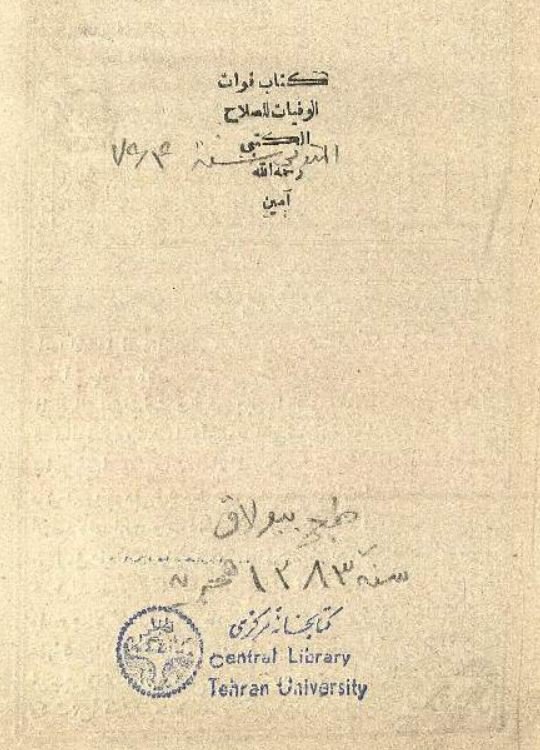 كتاب فوات
الوفيات للصلاح
الكتبي
المتوفى سنة ٧٦٤
رحمه الله
آمين
طبع ببولاق
سنة ١٢٨٣ هجرية
كتابخانه مركزى
Central Library
Tehran University